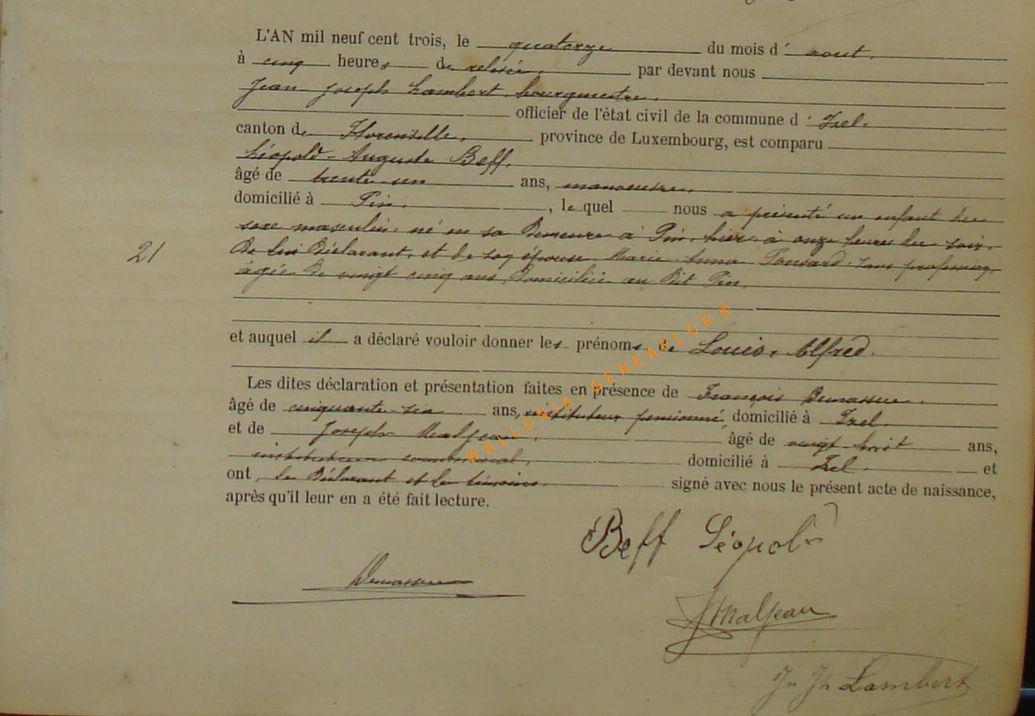 L'AN mil neuf cent trois, le quatorze du mois d' aout.
à cinq heures de relevée par devant nous
Jean Joseph Lambert, bourgmestre,
officier de l'état civil de la commune d' Izel.
canton de Florenville, province de Luxembourg, est comparu
Léopold-Auguste Beff,
âgé de trente-un ans, manoeuvre,
domicilié à Pin, le quel nous a présenté un enfant du
sexe masculin, né en sa demeure à Pin, hier, à onze heures du soir,
21
de lui déclarant, et de son épouse, Marie Anna Ponsard, sans profession,
âgée de vingt cinq ans, domiciliée au dit Pin.
et auquel il a déclaré vouloir donner les prénoms de Louis, Alfred.
WALLONIA GENEARLOR ®
Les dites déclaration et présentation faites en présence de François
âgé de cinquante six ans, instituteur pensionné, domicilié à Izel,
et de Joseph Maljean, âgé de vingt huit ans,
instituteur communal, domicilié à Izel. et
ont, le déclarant et les témoins signé avec nous le présent acte de naissance,
après qu'il leur en a été fait lecture.
Beff Léopold
JMaljean
Jn Jh Lambert